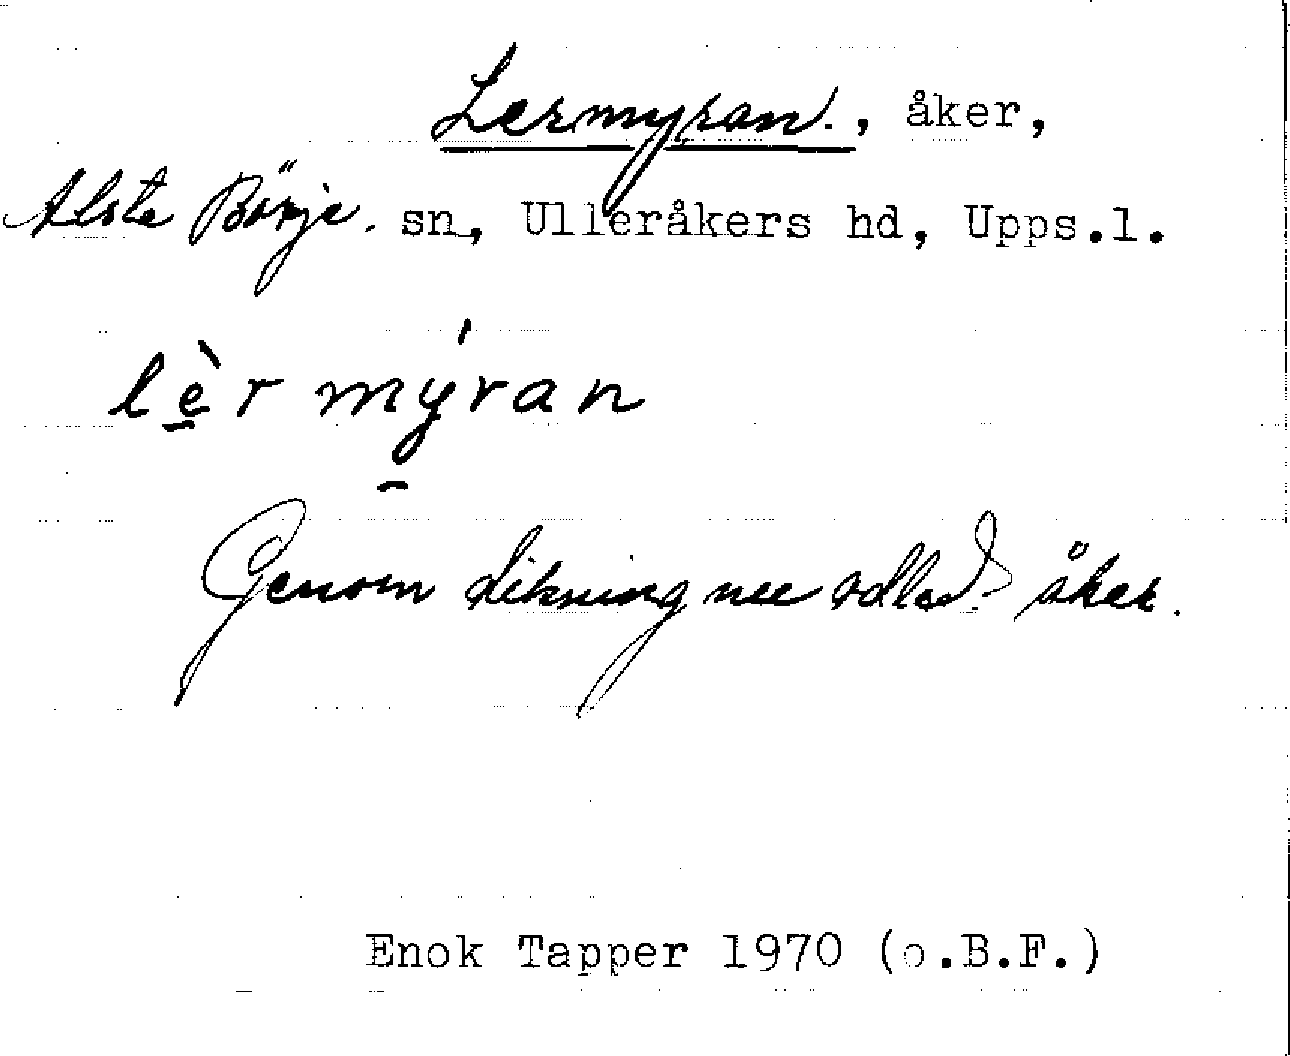 Lermyran., åker,
Alsta Börje. sn, Ulleråkers hd, Upps.l.
lèr mýran
Genom dikning nu odlad åker.
Enok Tapper 1970 (o.B.F.)